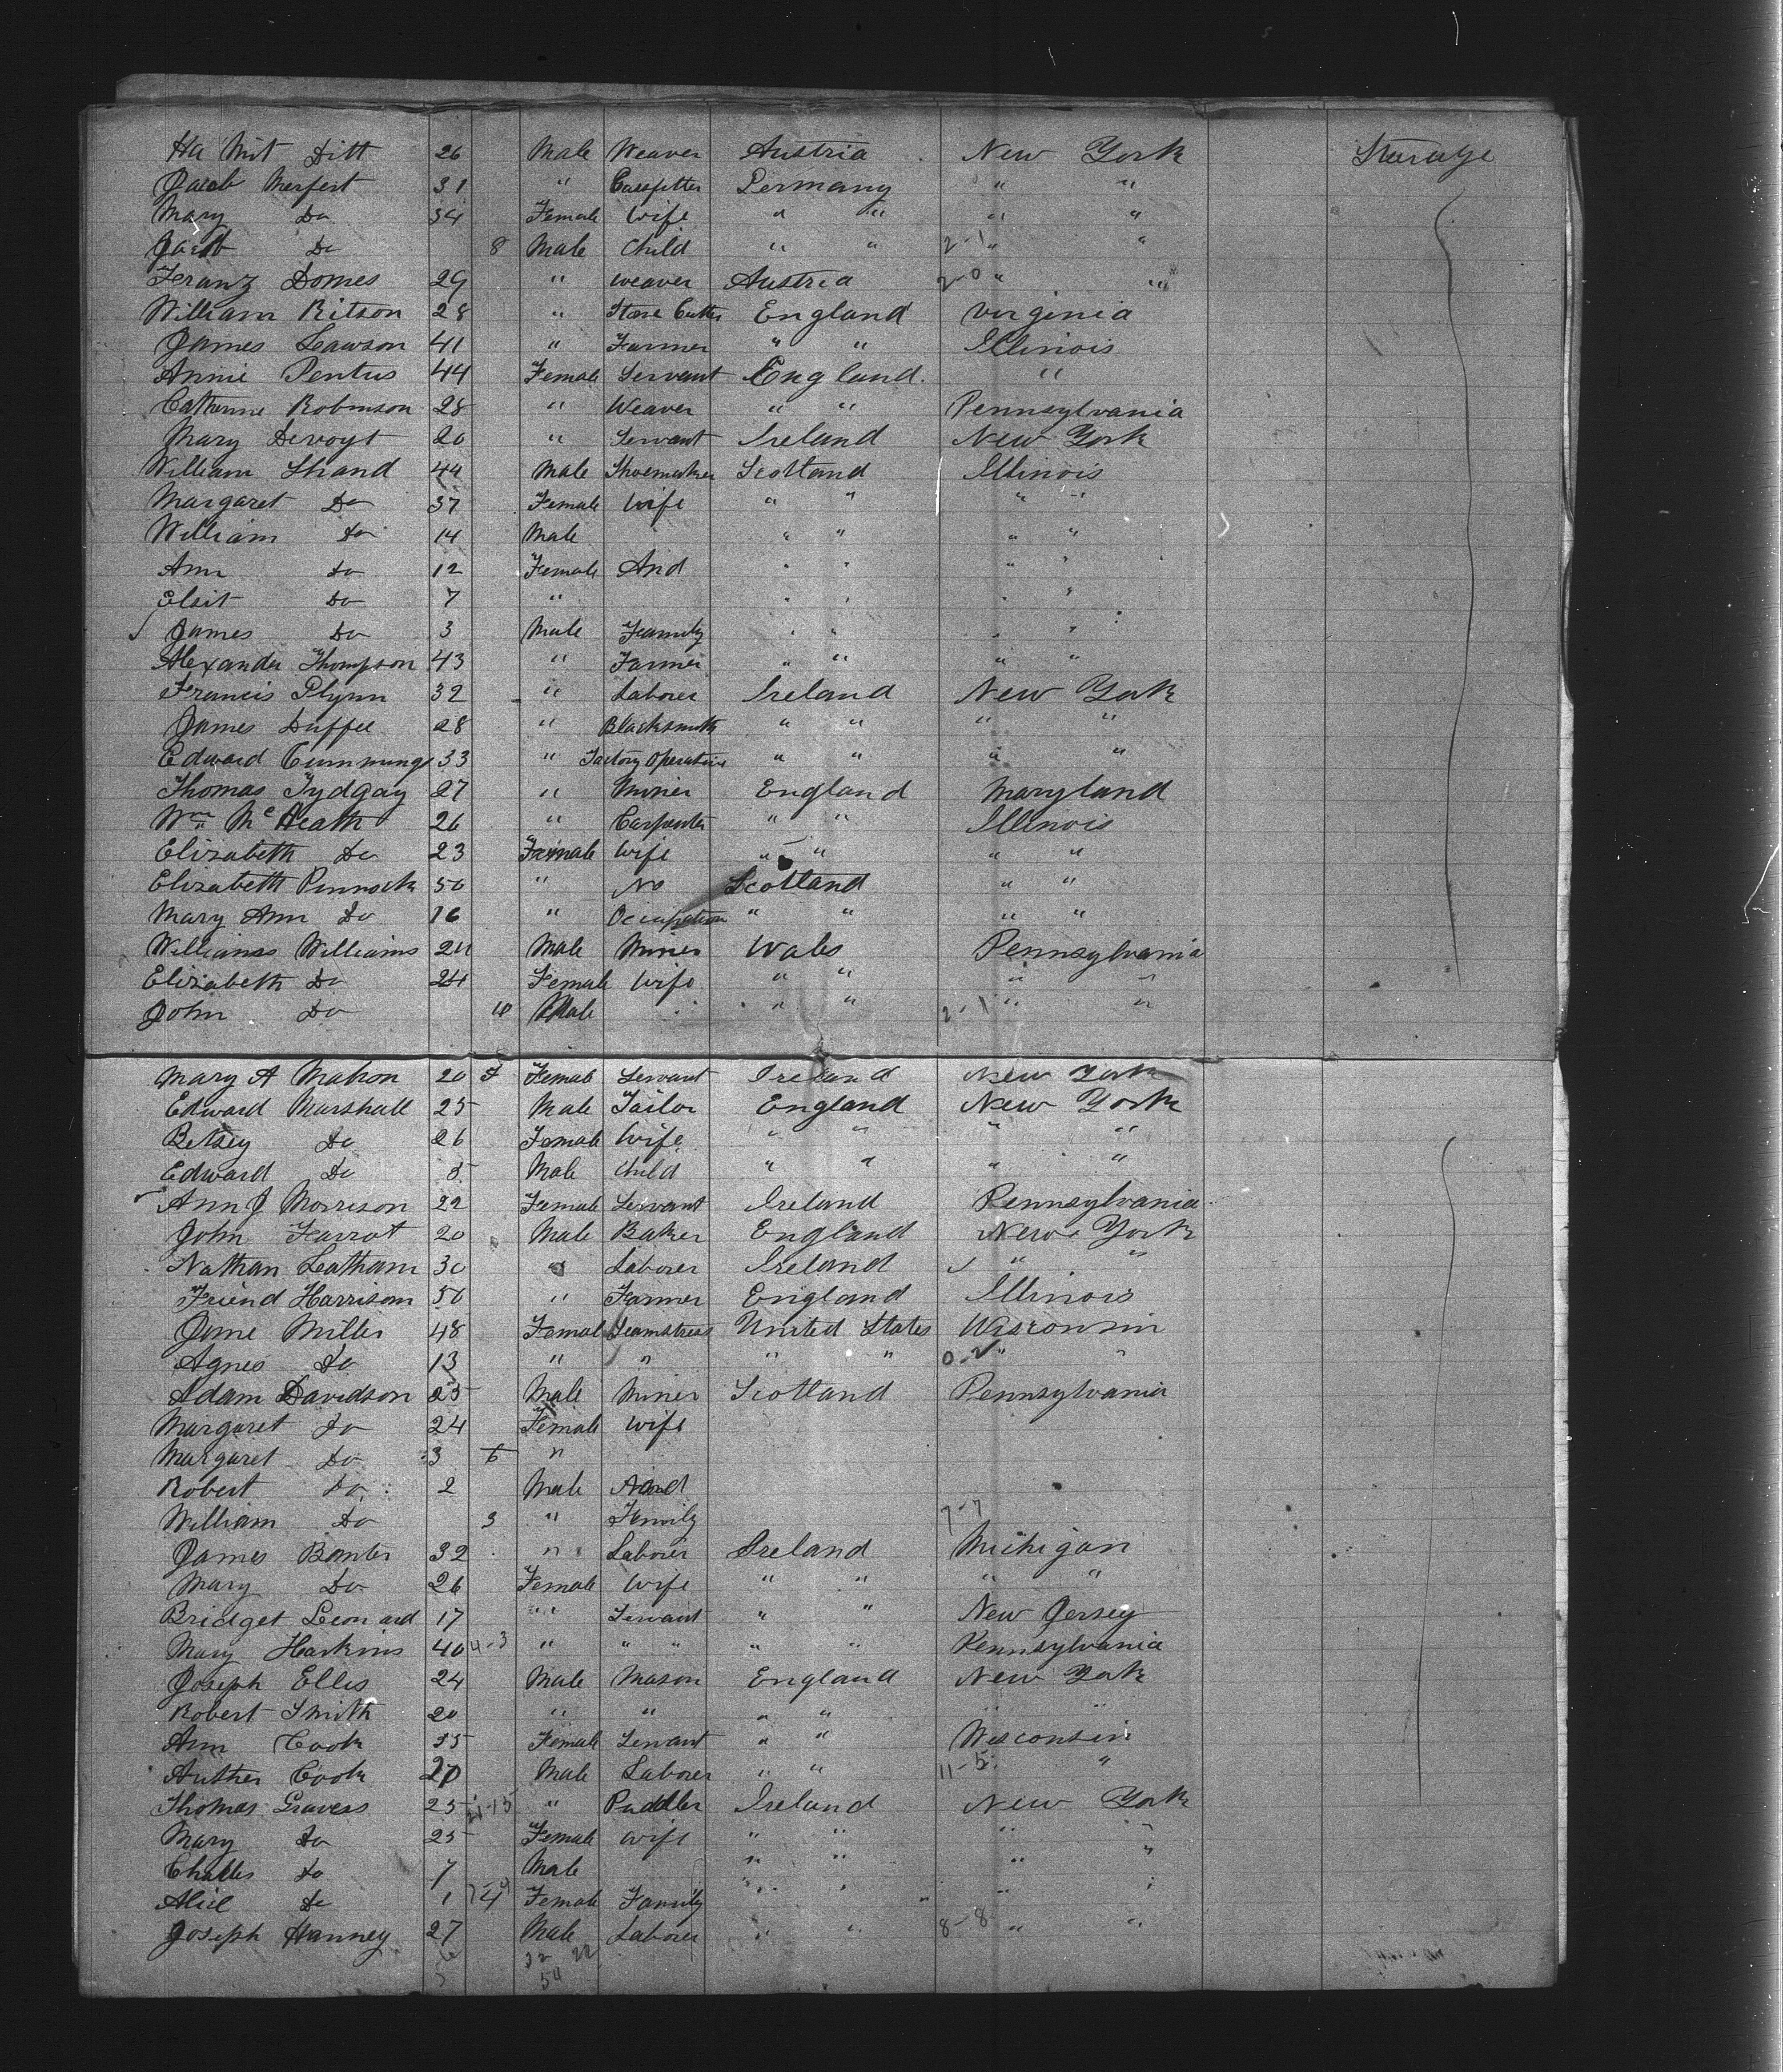 Ditt 26 Male Weaver Austria New York Steerage
Jacob Merfert 31 " Germany " "
Mary Do 34 Female Wife " " " "
Jacob Do 8 Male Child " " 2-1 " "
Franz Domes 29 " Weaver Austria 2-0 " "
William Ritson 28 " Stone Cutter England Virginia
James Lawson 41 " Farmer " " Illinois
Annie Pentus 44 Female Servant England "
Catherine Robinson 28 " Weaver " " Pennsylvania
Mary Devoyt 20 " Servant Ireland New York
William Shand 44 Male Shoemaker Scotland Illinois
Margaret Do 37 Female Wife " " " "
William Do 14 Male " " " "
Ann Do 12 Female And " " " "
Elsit Do 7 " " " " "
James Do 3 Male Family " " " "
Alexander Thompson 43 " Farmer " " " "
Francis Flynn 32 " Laborer Ireland New York
James Duffee 28 " Blacksmith " " " "
Edward Cummings 33 " Factory Operative " " " "
Thomas Tydgay 27 " Miner England Maryland
Wm McHeath 26 " Carpenter " " Illinois
Elizabeth Do 23 Female Wife " " " "
Elizabeth Pinnock 50 " No Scotland " "
Mary Ann Do 16 " Occupation " " " "
Williams Williams 24 Male Miner Wales Pennsylvania
Elizabeth Do 24 Female Wife " " " "
John Do 10 Male " " 2-1 " "
Mary A Mahon 20 Female Servant Ireland New York
Edward Marshall 25 Male Tailor England New York
Betsey Do 26 Female Wife " " " "
Edward Do Male Child " " " "
Ann J Morrison 22 Female Servant Ireland Pennsylvania
John Farrot 20 Male Baker England New York
Nathan Latham 30 " Laborer Ireland " "
Friend Harrison 50 " Farmer England Illinois
Jane Miller 48 Female Seamstress United States Wisconsin
Agnes Do 13 " " " " 0-2 " "
Adam Davidson 25 Male Miner Scotland Pennsylvania
Margaret Do 24 Female Wife
Margaret Do 3 6 "
Robert Do 2 Male And
William Do 3 " Family 7-7
James Banter 32 " Laborer Ireland Michigan
Mary Do 26 Female Wife " " " "
Bridget Leonard 17 " Servant " " New Jersey
Mary Harkins 40 4-3 " " " " " Pennsylvania
Joseph Ellis 24 Male Mason England New York
Robert Smith 20 " " " " " "
Ann Cook 35 Female Servant " " Wisconsin
Auther Cook 20 Male Laborer " " 11-5 "
Thomas Graves 25 21-15 " Puddler Ireland New York
Mary Do 25 Female Wife " " " "
Charles Do 7 Male " " " "
Alice Do 1 Female Family " " " "
Joseph Hanney 27 Male Laborer " " 8-8 " "
32 22
54